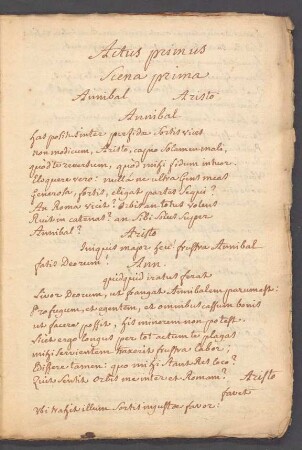 Actus primus
Scena prima
Annibal Aristo
Annibal
has positus inter perfidae Sortis vices
non modicum, Aristo, capio Solamen mali,
quod te reverhem, quod mihi fidum intuor.
Eloquere vero: nullane ultra Gens meas
Generosa, fortis, eligat partes sequi?
An Roma vicit? Orbis an totus volens
Ruit in catenas? an Sibi Solus Super
Annibal? Aristo
Iniquus major feci frustra Annibal
fatis Deorum? Ann.
quidquid iratus ferat
Livor Deorum, ut frangat Annibalem parum est:
Profugum, et egentem, et omnibus cassum bonis
ut facere possit, his minorem non potest.
Sic et ergo longus per tot actum plagas
mihi servientem traxerit frustra Labor;
Differe tamen: quo mihi Stant Res loco?
Quis Sentit Orbis me inter et Romam? Aristo
favet
Ubi trahit illum Sortis injustae favor: